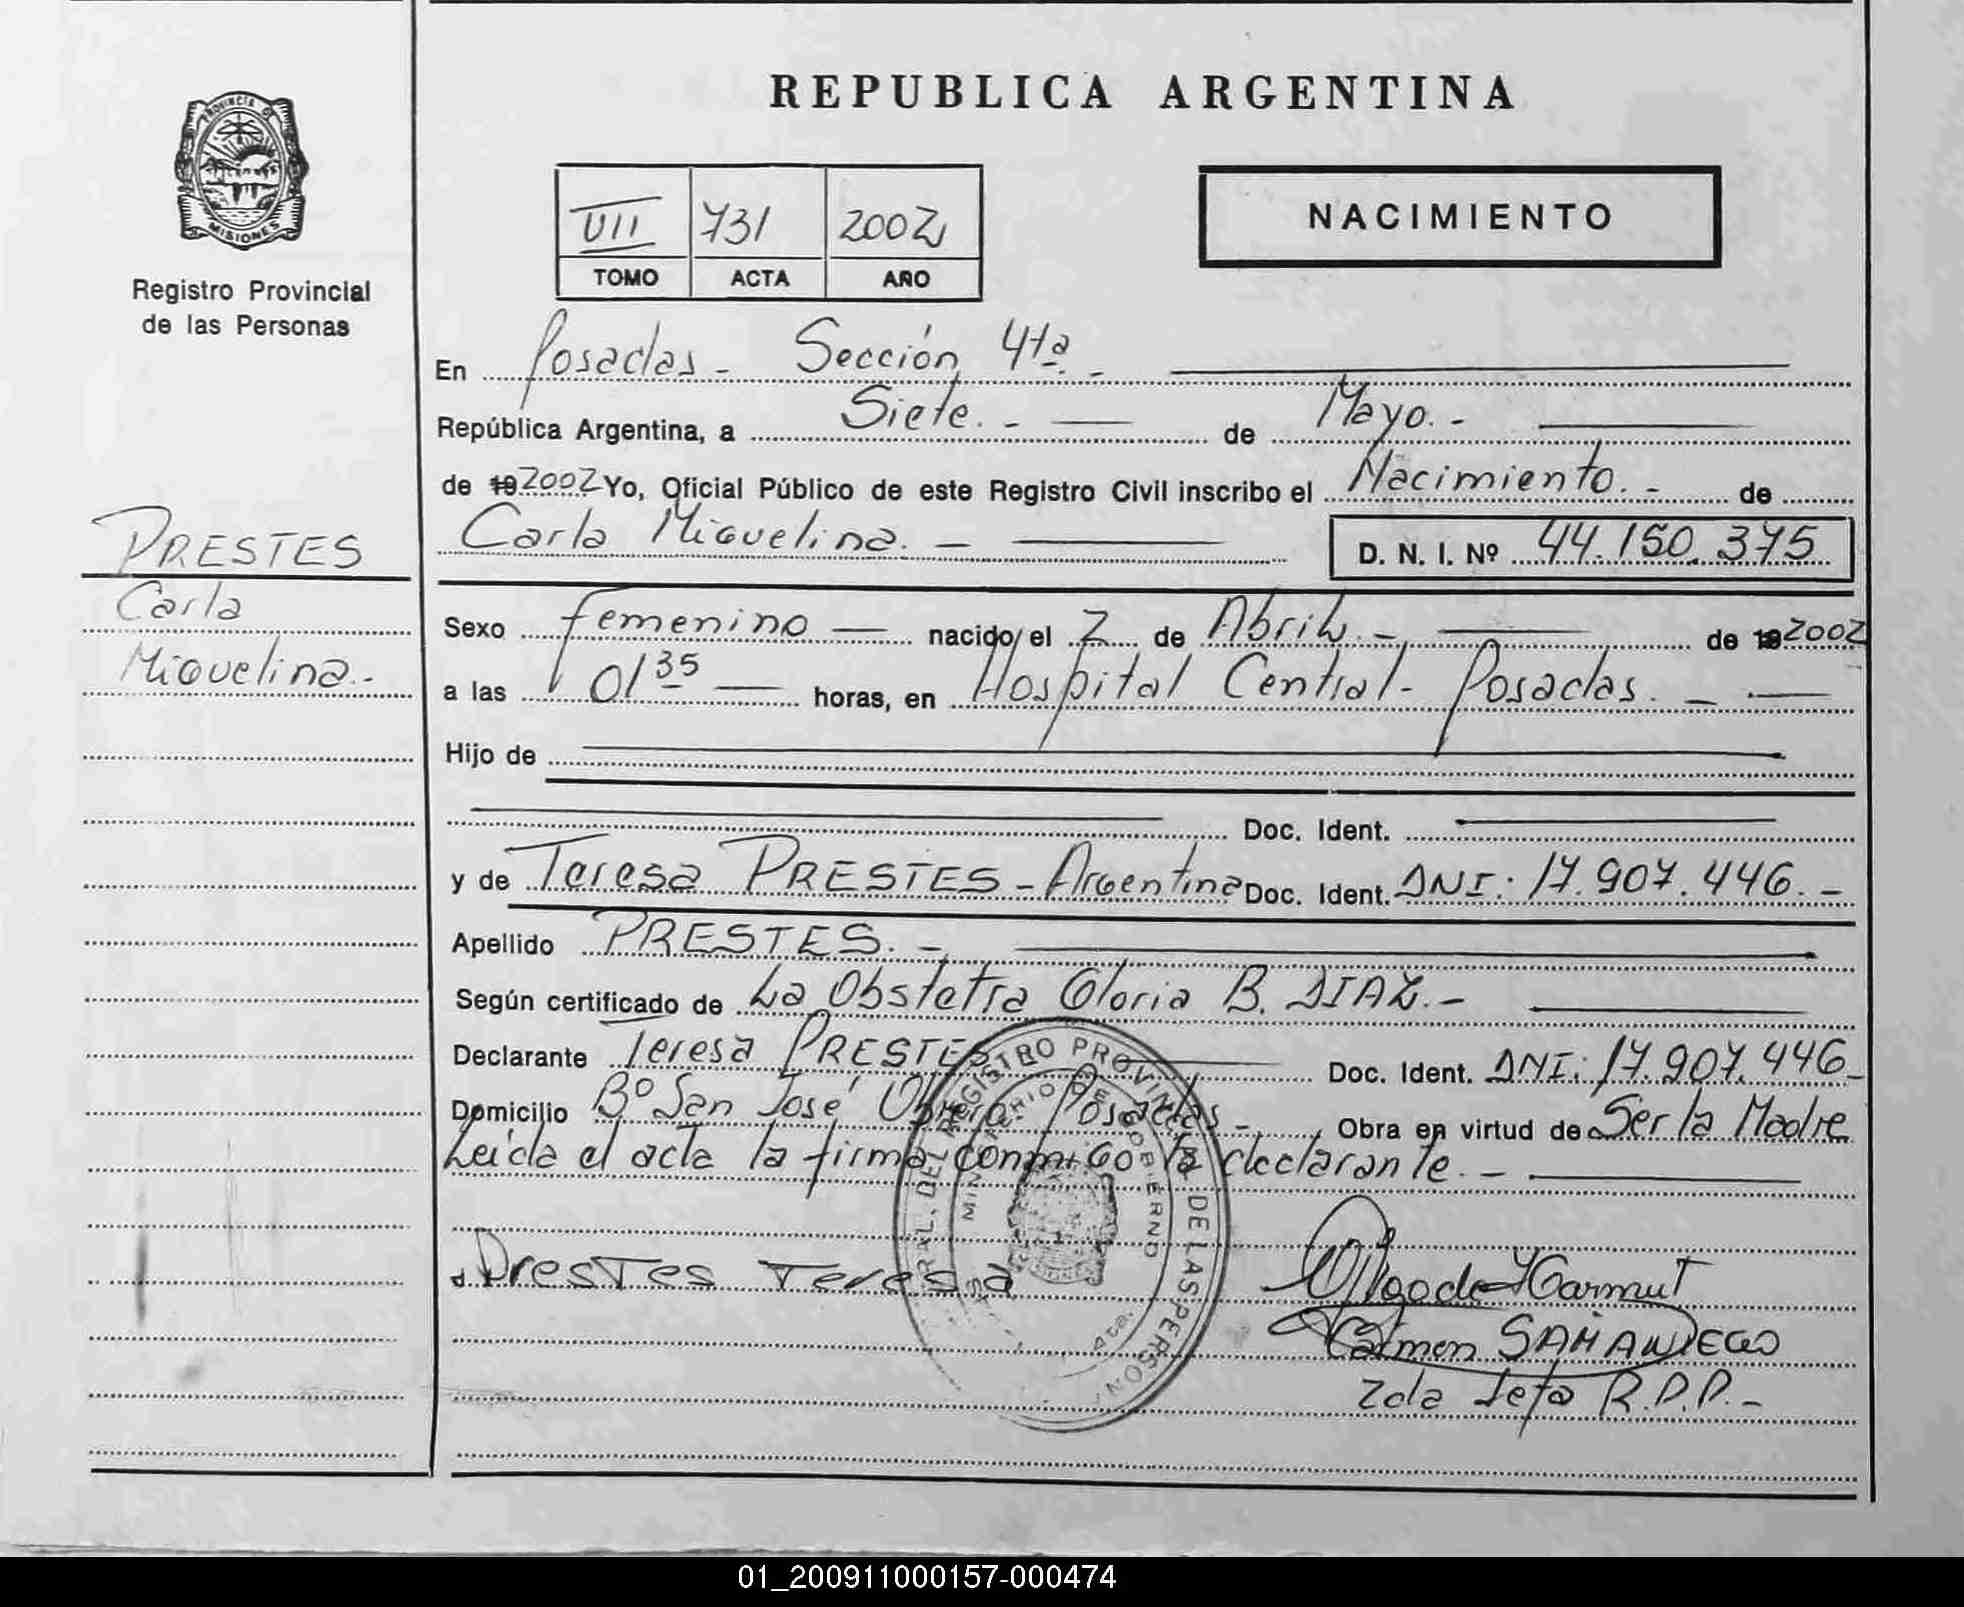 REPUBLICA ARGENTINA
PROVINCIA DE
MISIONES
Registro Provincial
de las Personas
VII 731 2002
TOMO ACTA AÑO
NACIMIENTO
En Posadas - Sección 4ta. -
República Argentina, a Siete. - de Mayo. -
de 19 2002 Yo, Oficial Público de este Registro Civil inscribo el Nacimiento. - de
Carla Miguelina. - D. N. I. Nº 44.150.375
PRESTES
Carla
Miguelina. -
Sexo femenino - nacido/el 2 de Abril. - de 19 2002
a las 01 35 horas, en Hospital Central - Posadas. -
Hijo de
Doc. Ident.
y de Teresa PRESTES - Argentina Doc. Ident. DNI: 17.907.446. -
Apellido PRESTES. -
Según certificado de La Obstetra Gloria B. DIAZ. -
Declarante Teresa PRESTES Doc. Ident. DNI: 17.907.446 -
Domicilio Bº San José Obrero - Posadas - Obra en virtud de Ser la Madre
Leída el acta la firma conmigo la declarante. -
REGISTRO PROVINCIAL DE LAS PERSONAS
MINISTERIO DE GOBIERNO
Prestes Teresa
Carmen SAMANIEGO
2da Jefa R.P.P. -
01_200911000157-000474